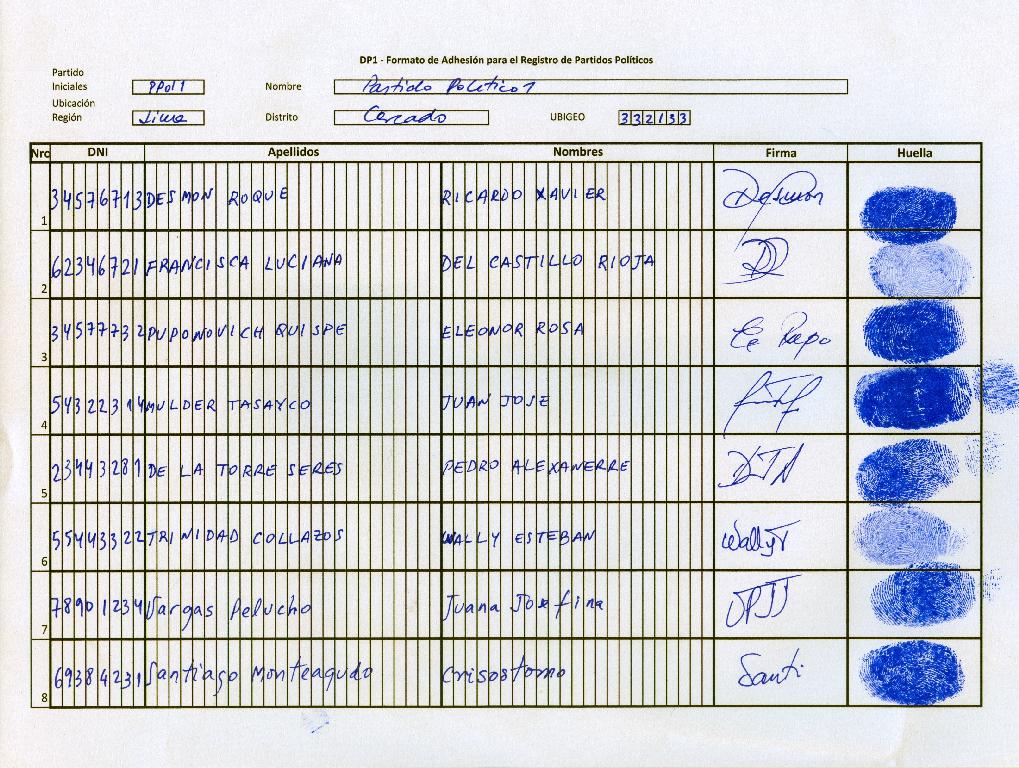 DP1 - Formato de Adhesión para el Registro de Partidos Políticos
Partido
Iniciales PPol1 Nombre Partido Politico 1
Ubicación
Región Lima Distrito Cercado UBIGEO 332133
Nro DNI Apellidos Nombres Firma Huella
1 34576713 DESMON ROQUE RICARDO XAVIER Desmon
2 62346721 FRANCISCA LUCIANA DEL CASTILLO RIOJA
3 34577732 PUPONOVICH QUISPE ELEONOR ROSA
4 54322314 MULDER TASAYCO JUAN JOSE
5 23443281 DE LA TORRE SERES PEDRO ALEXANERRE
6 55443322 TRINIDAD COLLAZOS WALLY ESTEBAN WallyT
7 78901234 Vargas Pelucho Juana Josefina
8 69384231 Santiago Monteagudo Crisostomo Santi